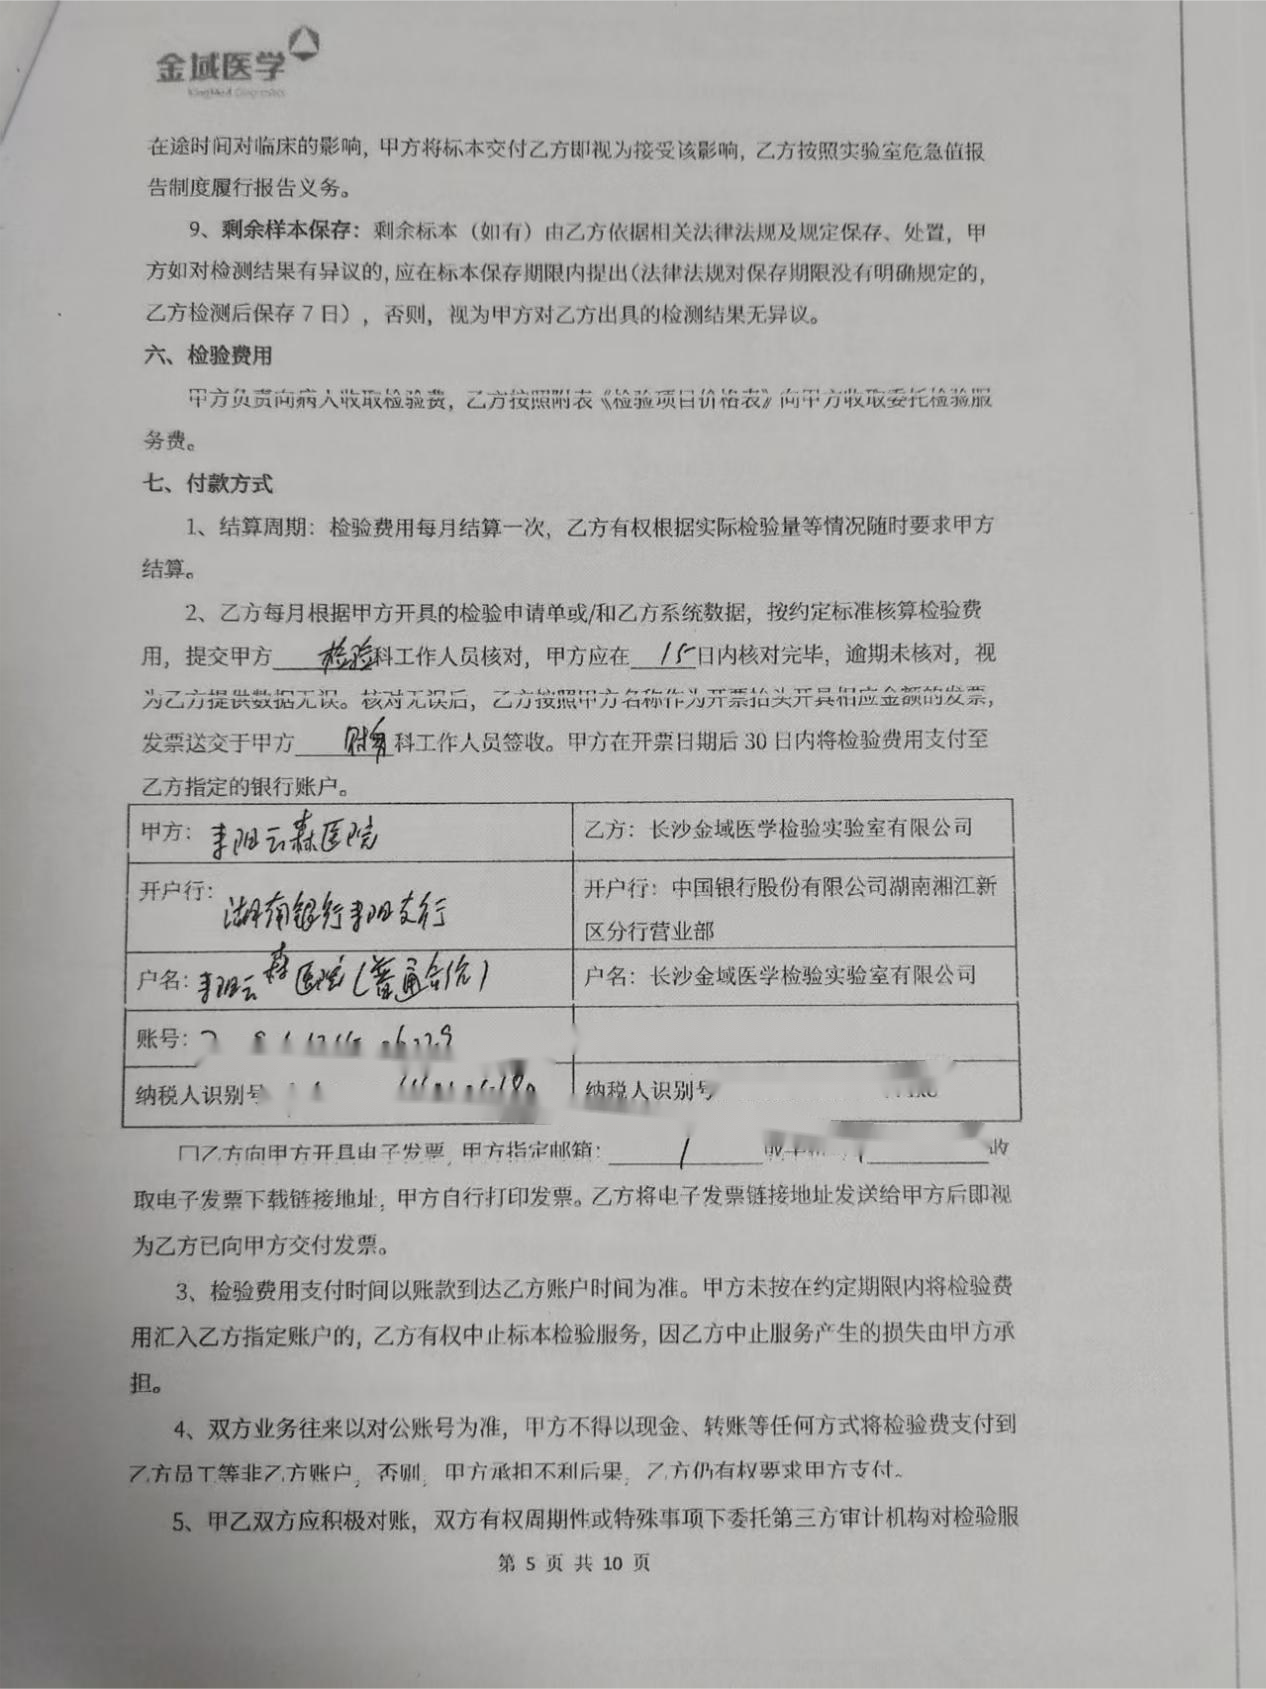 金域医学
KingMed Diagnostics
在途时间对临床的影响，甲方将标本交付乙方即视为接受该影响，乙方按照实验室危急值报
告制度履行报告义务。
9、剩余样本保存：剩余标本（如有）由乙方依据相关法律法规及规定保存、处置，甲
方如对检测结果有异议的，应在标本保存期限内提出（法律法规对保存期限没有明确规定的，
乙方检测后保存 7 日），否则，视为甲方对乙方出具的检测结果无异议。
六、检验费用
甲方负责向病人收取检验费，乙方按照附表《检验项目价格表》向甲方收取委托检验服
务费。
七、付款方式
1、结算周期：检验费用每月结算一次，乙方有权根据实际检验量等情况随时要求甲方
结算。
2、乙方每月根据甲方开具的检验申请单或/和乙方系统数据，按约定标准核算检验费
用，提交甲方 检验科工作人员核对，甲方应在 15日内核对完毕，逾期未核对，视
为乙方提供数据无误。核对无误后，乙方按照甲方名称作为开票抬头开具相应金额的发票，
发票送交于甲方 财务科工作人员签收。甲方在开票日期后 30 日内将检验费用支付至
乙方指定的银行账户。
甲方：耒阳云森医院 乙方：长沙金域医学检验实验室有限公司
开户行：湖南银行耒阳支行 开户行：中国银行股份有限公司湖南湘江新
区分行营业部
户名：耒阳云森医院（普通合伙） 户名：长沙金域医学检验实验室有限公司
账号：
纳税人识别号 纳税人识别号
口乙方向甲方开具电子发票，甲方指定邮箱： / 收
取电子发票下载链接地址，甲方自行打印发票。乙方将电子发票链接地址发送给甲方后即视
为乙方已向甲方交付发票。
3、检验费用支付时间以账款到达乙方账户时间为准。甲方未按在约定期限内将检验费
用汇入乙方指定账户的，乙方有权中止标本检验服务，因乙方中止服务产生的损失由甲方承
担。
4、双方业务往来以对公账号为准，甲方不得以现金、转账等任何方式将检验费支付到
乙方员工等非乙方账户，否则，甲方承担不利后果，乙方仍有权要求甲方支付。
5、甲乙双方应积极对账，双方有权周期性或特殊事项下委托第三方审计机构对检验服
第 5 页 共 10 页